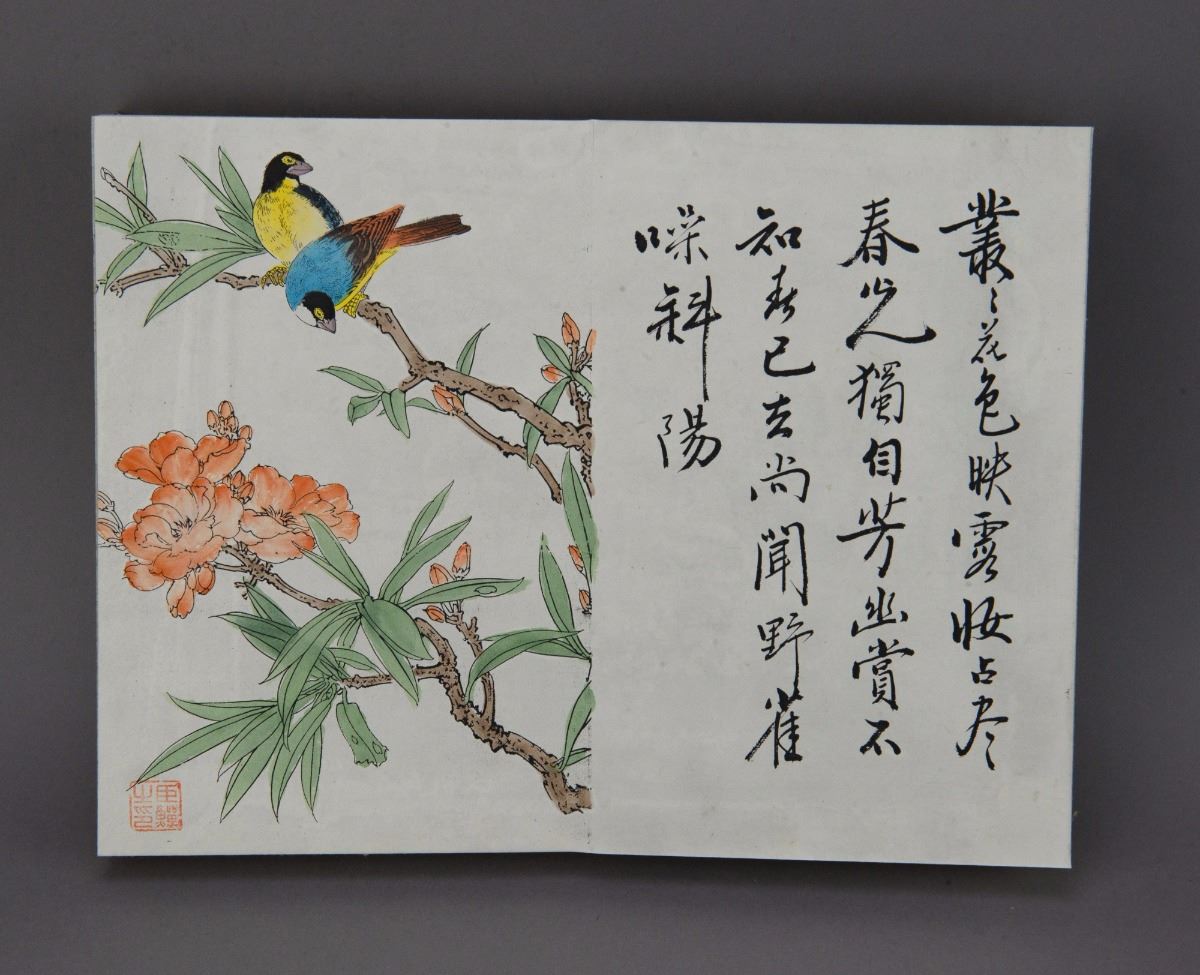 叢〻花色映露妝占尽
春光獨自芳幽賞不
知春已去尚聞野雀
噪斜陽